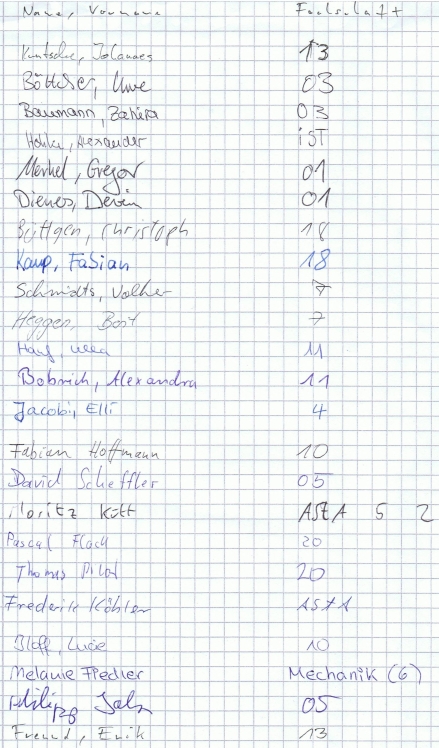 Name, Vorname Fachschaft
Johannes 13
Böttcher, Uwe 03
Baumann, Zahira 03
Alexander iST
Merkel, Gregor 01
Dienes, Devin 01
Büttgen, Christoph 18
Kamp, Fabian 18
Schmidts, Volker 7
Heggen, 7
Hanf, Ulla 11
Bobrich, Alexandra 11
Jacobi, Elli 4
Fabian Hoffmann 10
David Scheffler 05
Moritz Kütt AStA 5 2
Pascal Flach 20
Thomas Pilot 20
Frederik Köhler AStA
Bloff, Lucie 10
Melanie Fiedler Mechanik (6)
Philipp 05
Freund, Erik 13